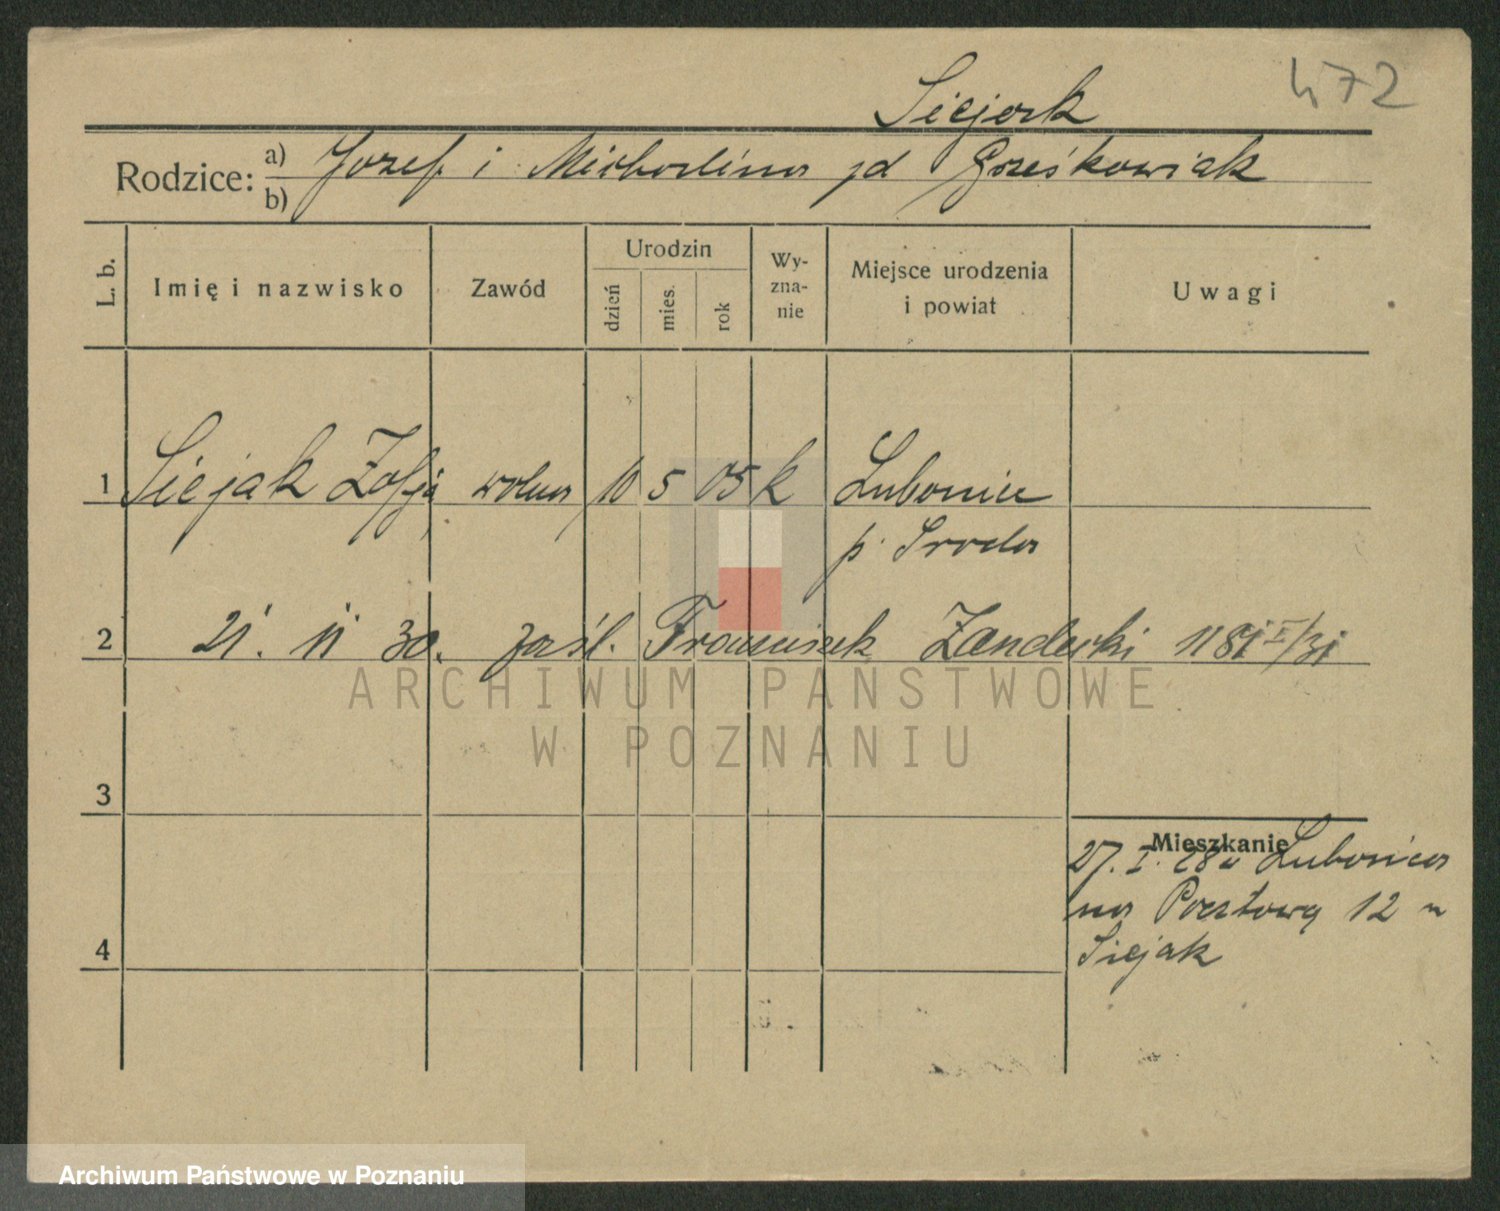 472
Siejak
Rodzice: a) Jozef i Michalina zd Grześkowiak
b)
L. b. Imię i nazwisko Zawód Urodzin dzień mies. rok Wy-zna-nie Miejsce urodzenia i powiat Uwagi
1 Siejak Zofja wolna 10 5 05 k Lubonice
p. Sroda
2 21. 11 30. zaśl. Franciszek Zanderski 1181 I/31
3
Mieszkanie
27. I. 28 u Lubonica
na Pocztową 12 u
4 Siejak
ARCHIWUM PAŃSTWOWE
W POZNANIU
Archiwum Państwowe w Poznaniu